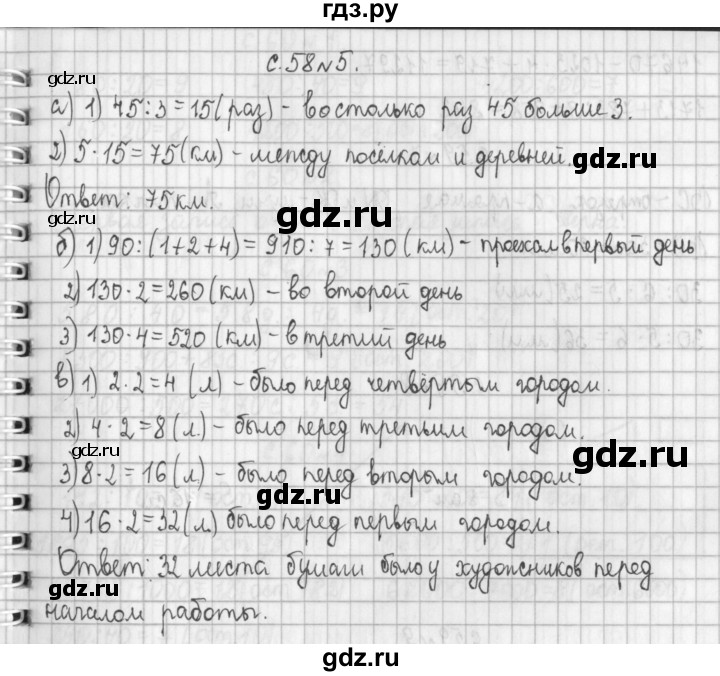 гдз.ру
с.58 №5.
gdz.ru
а) 1) 45:3=15 (раз) - во столько раз 45 больше 3.
2) 5·15=75 (км) - между посёлком и деревней. gdz.ru
gdz.ru
Ответ: 75 км.
gdz.ru
б) 1) 90:(1+2+4)=910:7=130 (км) - проехал в первый день
2) 130·2=260 (км) - во второй день
3) 130·4=520 (км) - в третий день
в) 1) 2·2=4 (л) - было перед четвёртым городом.
2) 4·2=8 (л) - было перед третьим городом.
gdz.ru
gdz.ru
3) 8·2=16 (л) - было перед вторым городом.
gdz.ru
4) 16·2=32 (л) было перед первым городом.
Ответ: 32 листа бумаги было у художников перед
gdz.ru
началом работы.
gdz.ru
gdz.ru